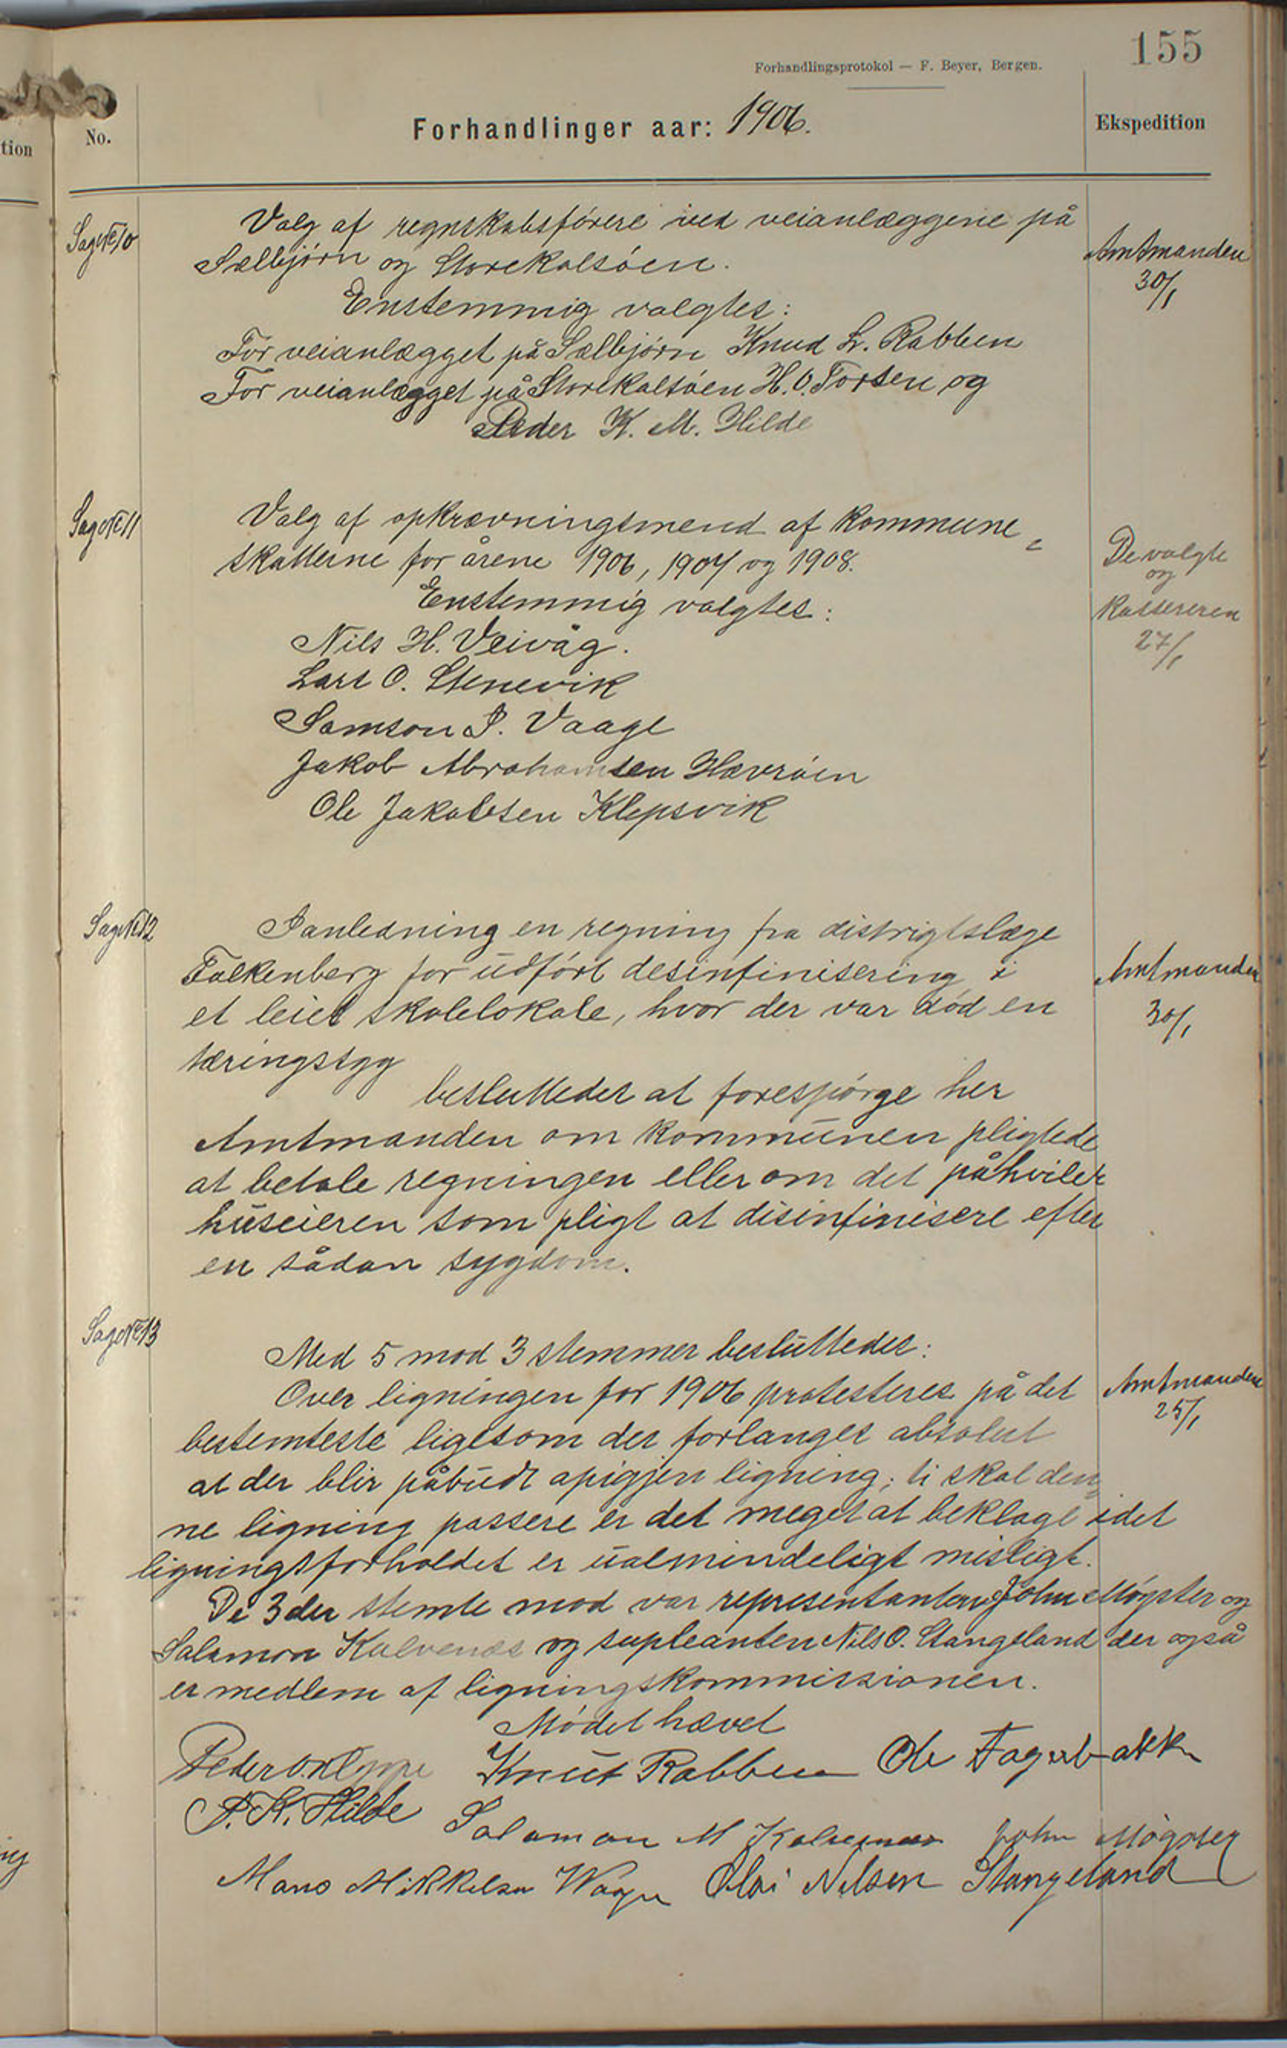 155
Forhandlingsprotokol — F. Beyer, Bergen.
tion
No.
Forhandlinger aar: 1906.
Ekspedition
Sag № 10
Valg af regnskabsførere ved veianlæggene på
Sælbjørn og Storekalsøen.
Enstemmig valgtes:
For veianlægget på Sælbjørn Knud L. Rabben
For veianlægget på Storekalsøen H. O. Torsen og
Peder K. M. Hilde
Amtmanden
30/1
Sag № 11
Valg af opkrævningsmend af kommune=
skatterne for årene 1906, 1907 og 1908.
Enstemmig valgtes:
Nils H. Veivåg.
Lars O. Stenevik
Samson J. Vaage
Jakob Abrahamsen Hævrøen
Ole Jakobsen Klepsvik
De valgte
og
Kassereren
27/1
Sag № 12
I anledning en regning fra distrigtslæge
Falkenberg for udført desinfinisering i
et leiet skolelokale, hvor der var død en
tæringssyg
besluttedes at forespørge her
Amtmanden om kommunen pligtede
at betale regningen eller om det påhviler
huseieren som pligt at disinfinisere efter
en sådan sygdom.
Amtmanden
30/1
Sag № 13
Med 5 mod 3 stemmer besluttedes:
Over ligningen for 1906 protesteres på det
bestemteste ligesom der forlanges absolut
at der blir påbudt apigjen ligning; ti skal den=
ne ligning passere er det meget at beklage idet
ligningsforholdet er ualmindeligt misligt.
De 3 der stemte mod var representanterne John Møgster og
Salamon Kalvenes og supleanten Nils O. Stangeland der også
er medlem af ligningskommissionen.
Amtmanden
25/1
Mødet hævet
Peder O. Knut Rabben Ole Fagerbakk
P. K. Hilde Salamon M Kalvenæs John Møgster
Mons Mikkelsen Wåge Olai Nilsen Stangeland